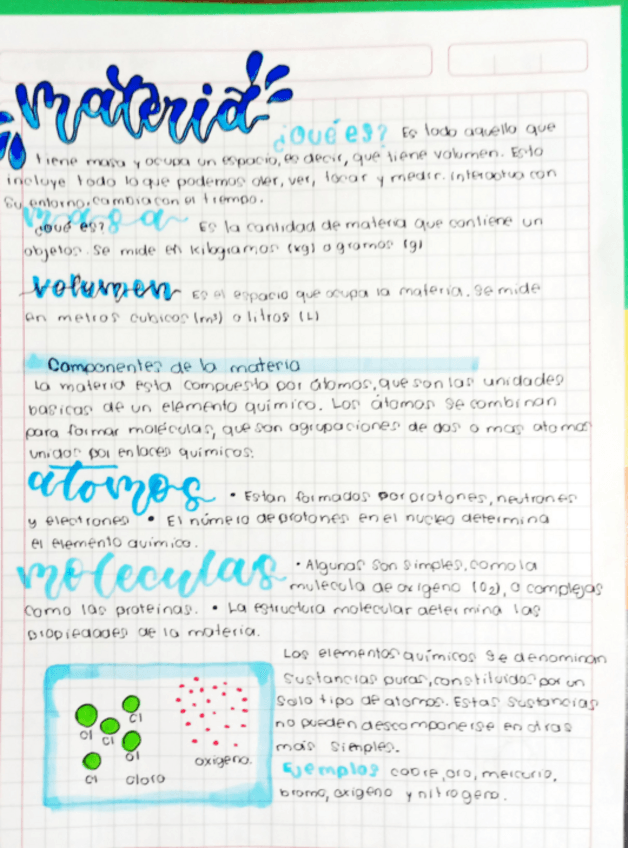 materia
¿Qué es? Es todo aquello que
tiene masa y ocupa un espacio, es decir, que tiene volumen. Esto
incluye todo lo que podemos oler, ver, tocar y medir. interactua con
su entorno, cambia con el tiempo.
masa
¿Qué es? Es la cantidad de materia que contiene un
objetos. Se mide en kilogramos (kg) o gramos (g)
volumen Es el espacio que ocupa la materia. Se mide
en metros cubicos (m³) o litros (L)
Componentes de la materia
La materia esta compuesta por átomos, que son las unidades
basicas de un elemento químico. Los átomos se combinan
para formar moléculas, que son agrupaciones de dos o mas atomos
unidos por enlaces químicos.
atomos • Estan formados por protones, neutrones
y electrones • El número de protones en el nucleo determina
el elemento químico.
moleculas • Algunas son simples, como la
mulecula de oxigeno (O2), o complejas
como las proteinas. • La estructura molecular determina las
propiedades de la materia.
Los elementos químicos se denominan
sustancias puras, constituidas por un
solo tipo de atomos. Estas sustancias
no pueden descomponerse en otras
mais simples.
Ejemplos cobre, oro, mercurio,
bromo, oxigeno y nitrogeno.
Cl
Cl Cl
Cl
Cl cloro
oxigeno.